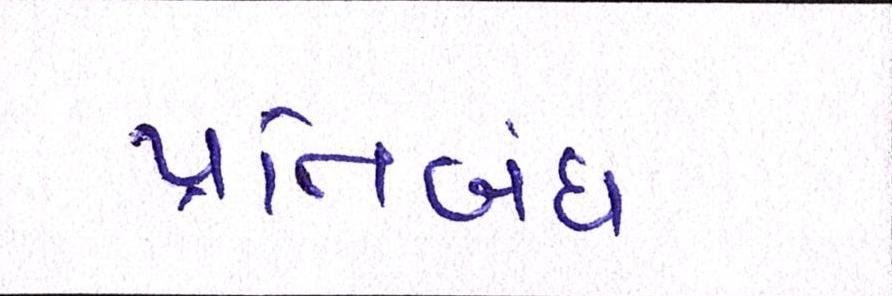 પ્રતિબંધ